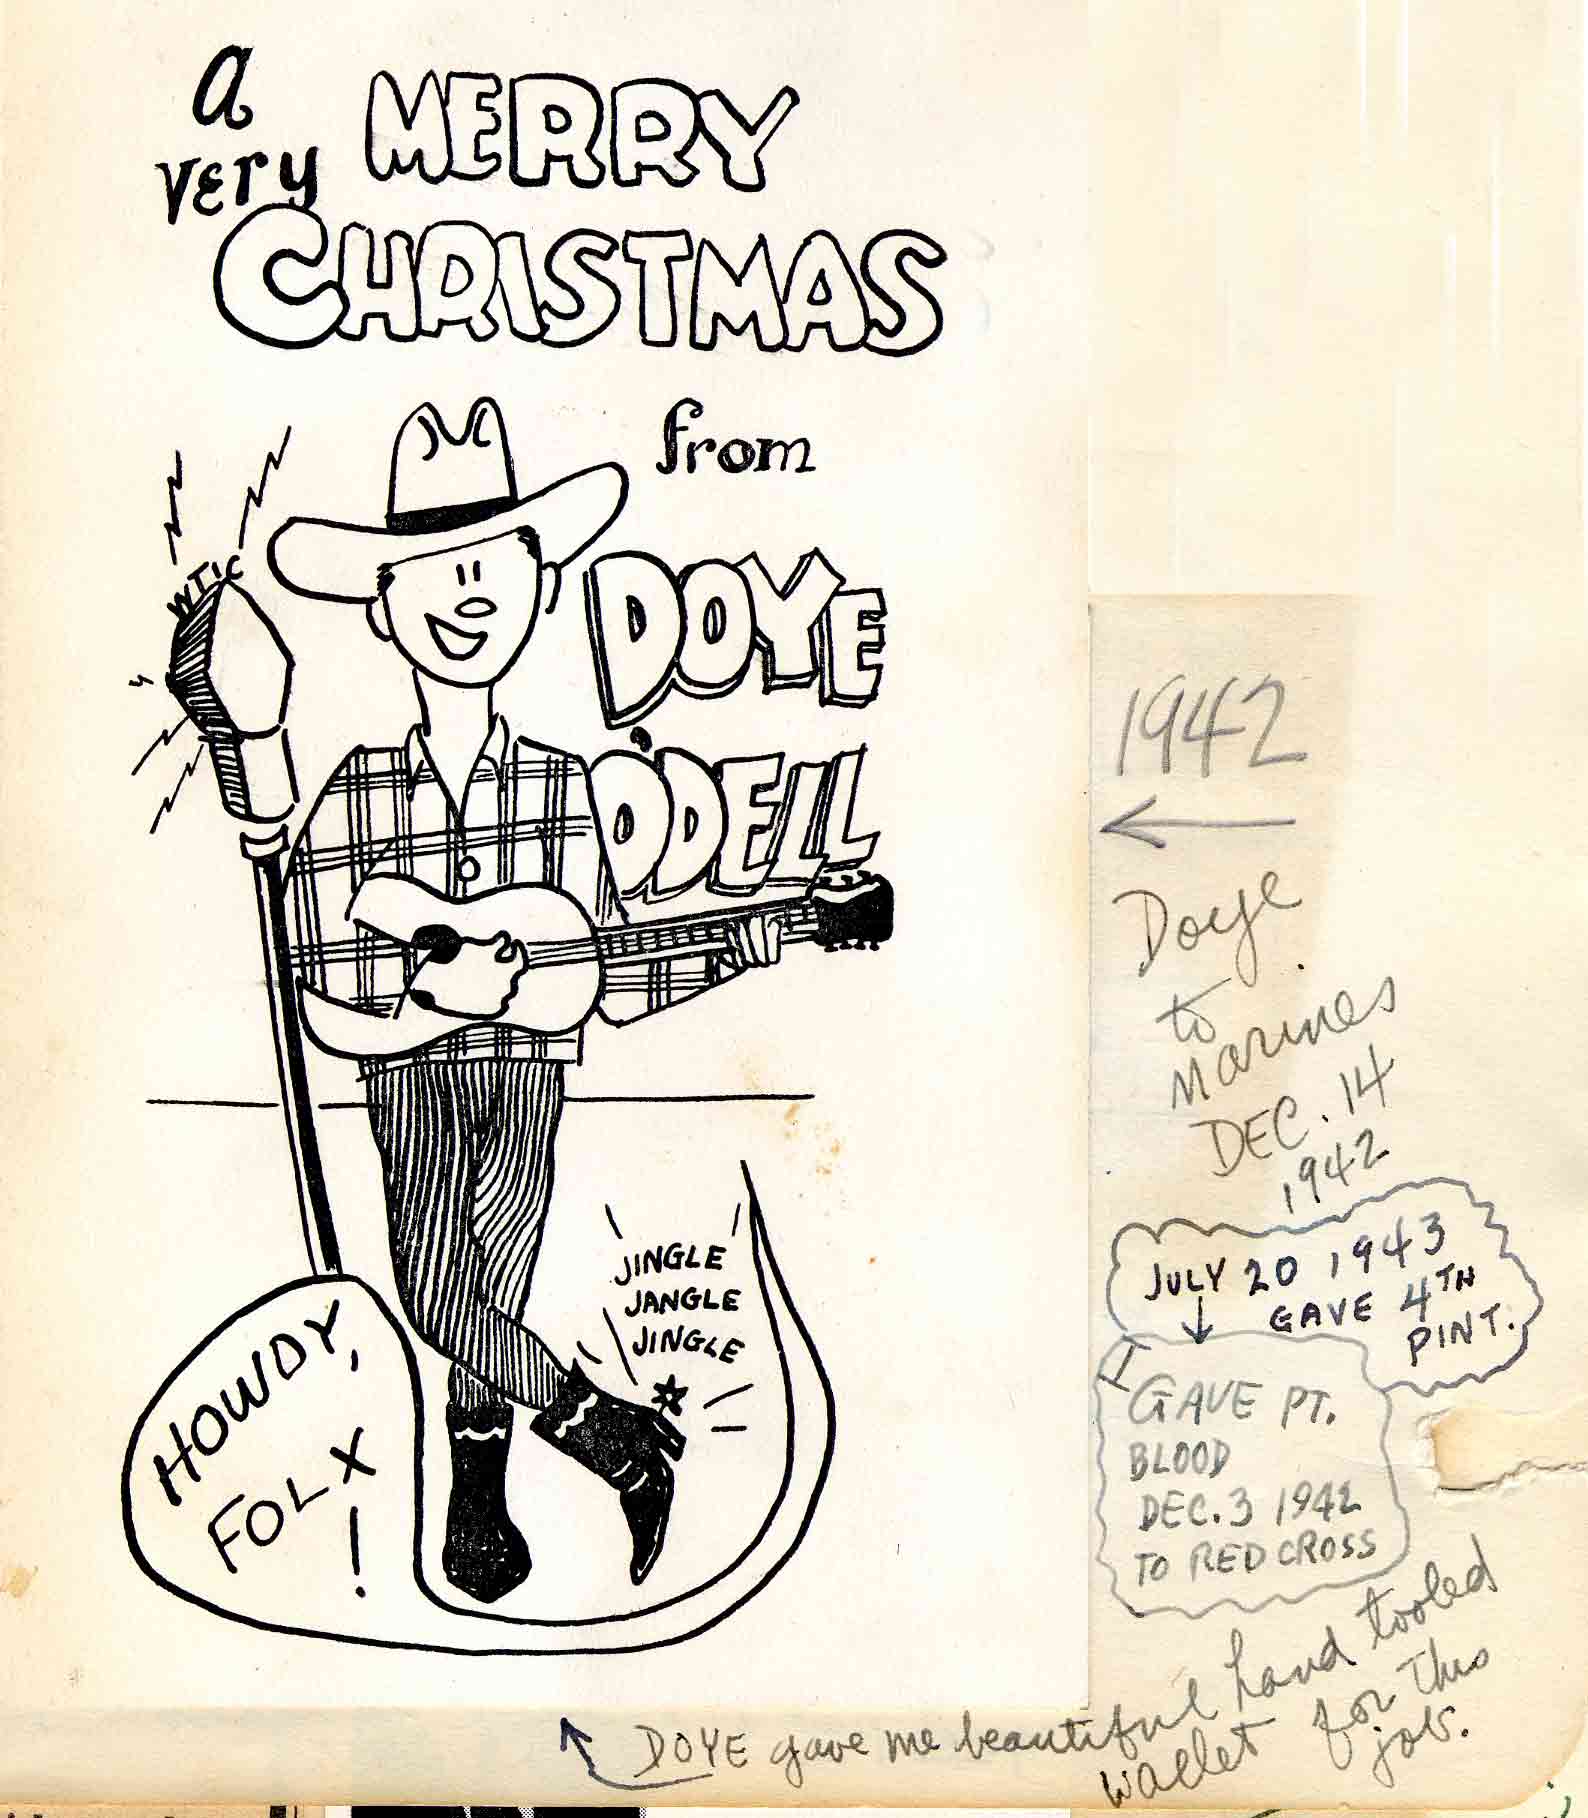 a
very MERRY
CHRISTMAS
from
DOYE
O'DELL
WTIC
JINGLE
JANGLE
JINGLE
HOWDY,
FOLX
!
1942
Doye
to
Marines
DEC. 14
1942
JULY 20 1943
GAVE 4TH
PINT.
I
GAVE PT.
BLOOD
DEC. 3 1942
TO RED CROSS
DOYE gave me beautiful hand tooled
wallet for this
job.